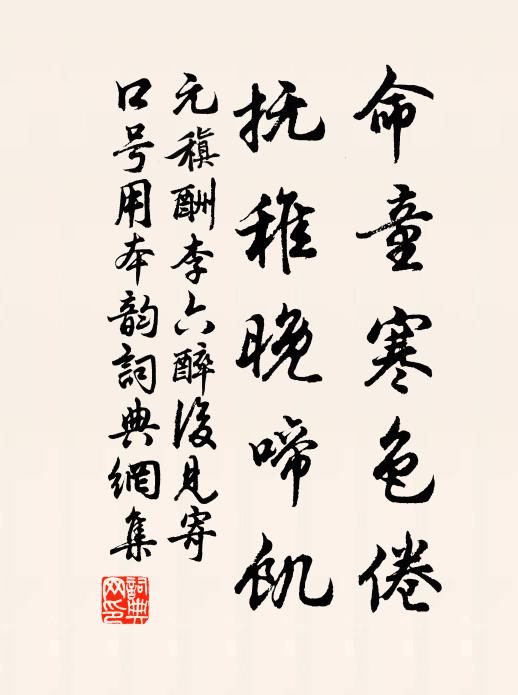 命童寒色倦
抚稚晚啼飢
元稹酬李六醉後見寄
口号用本韵詞典網集
詞典网印